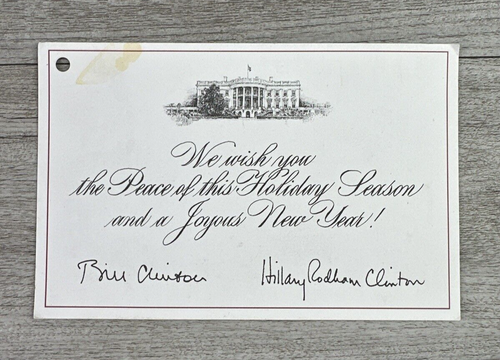 We wish you
the Peace of this Holiday Season
and a Joyous New Year!
Bill Clinton Hillary Rodham Clinton